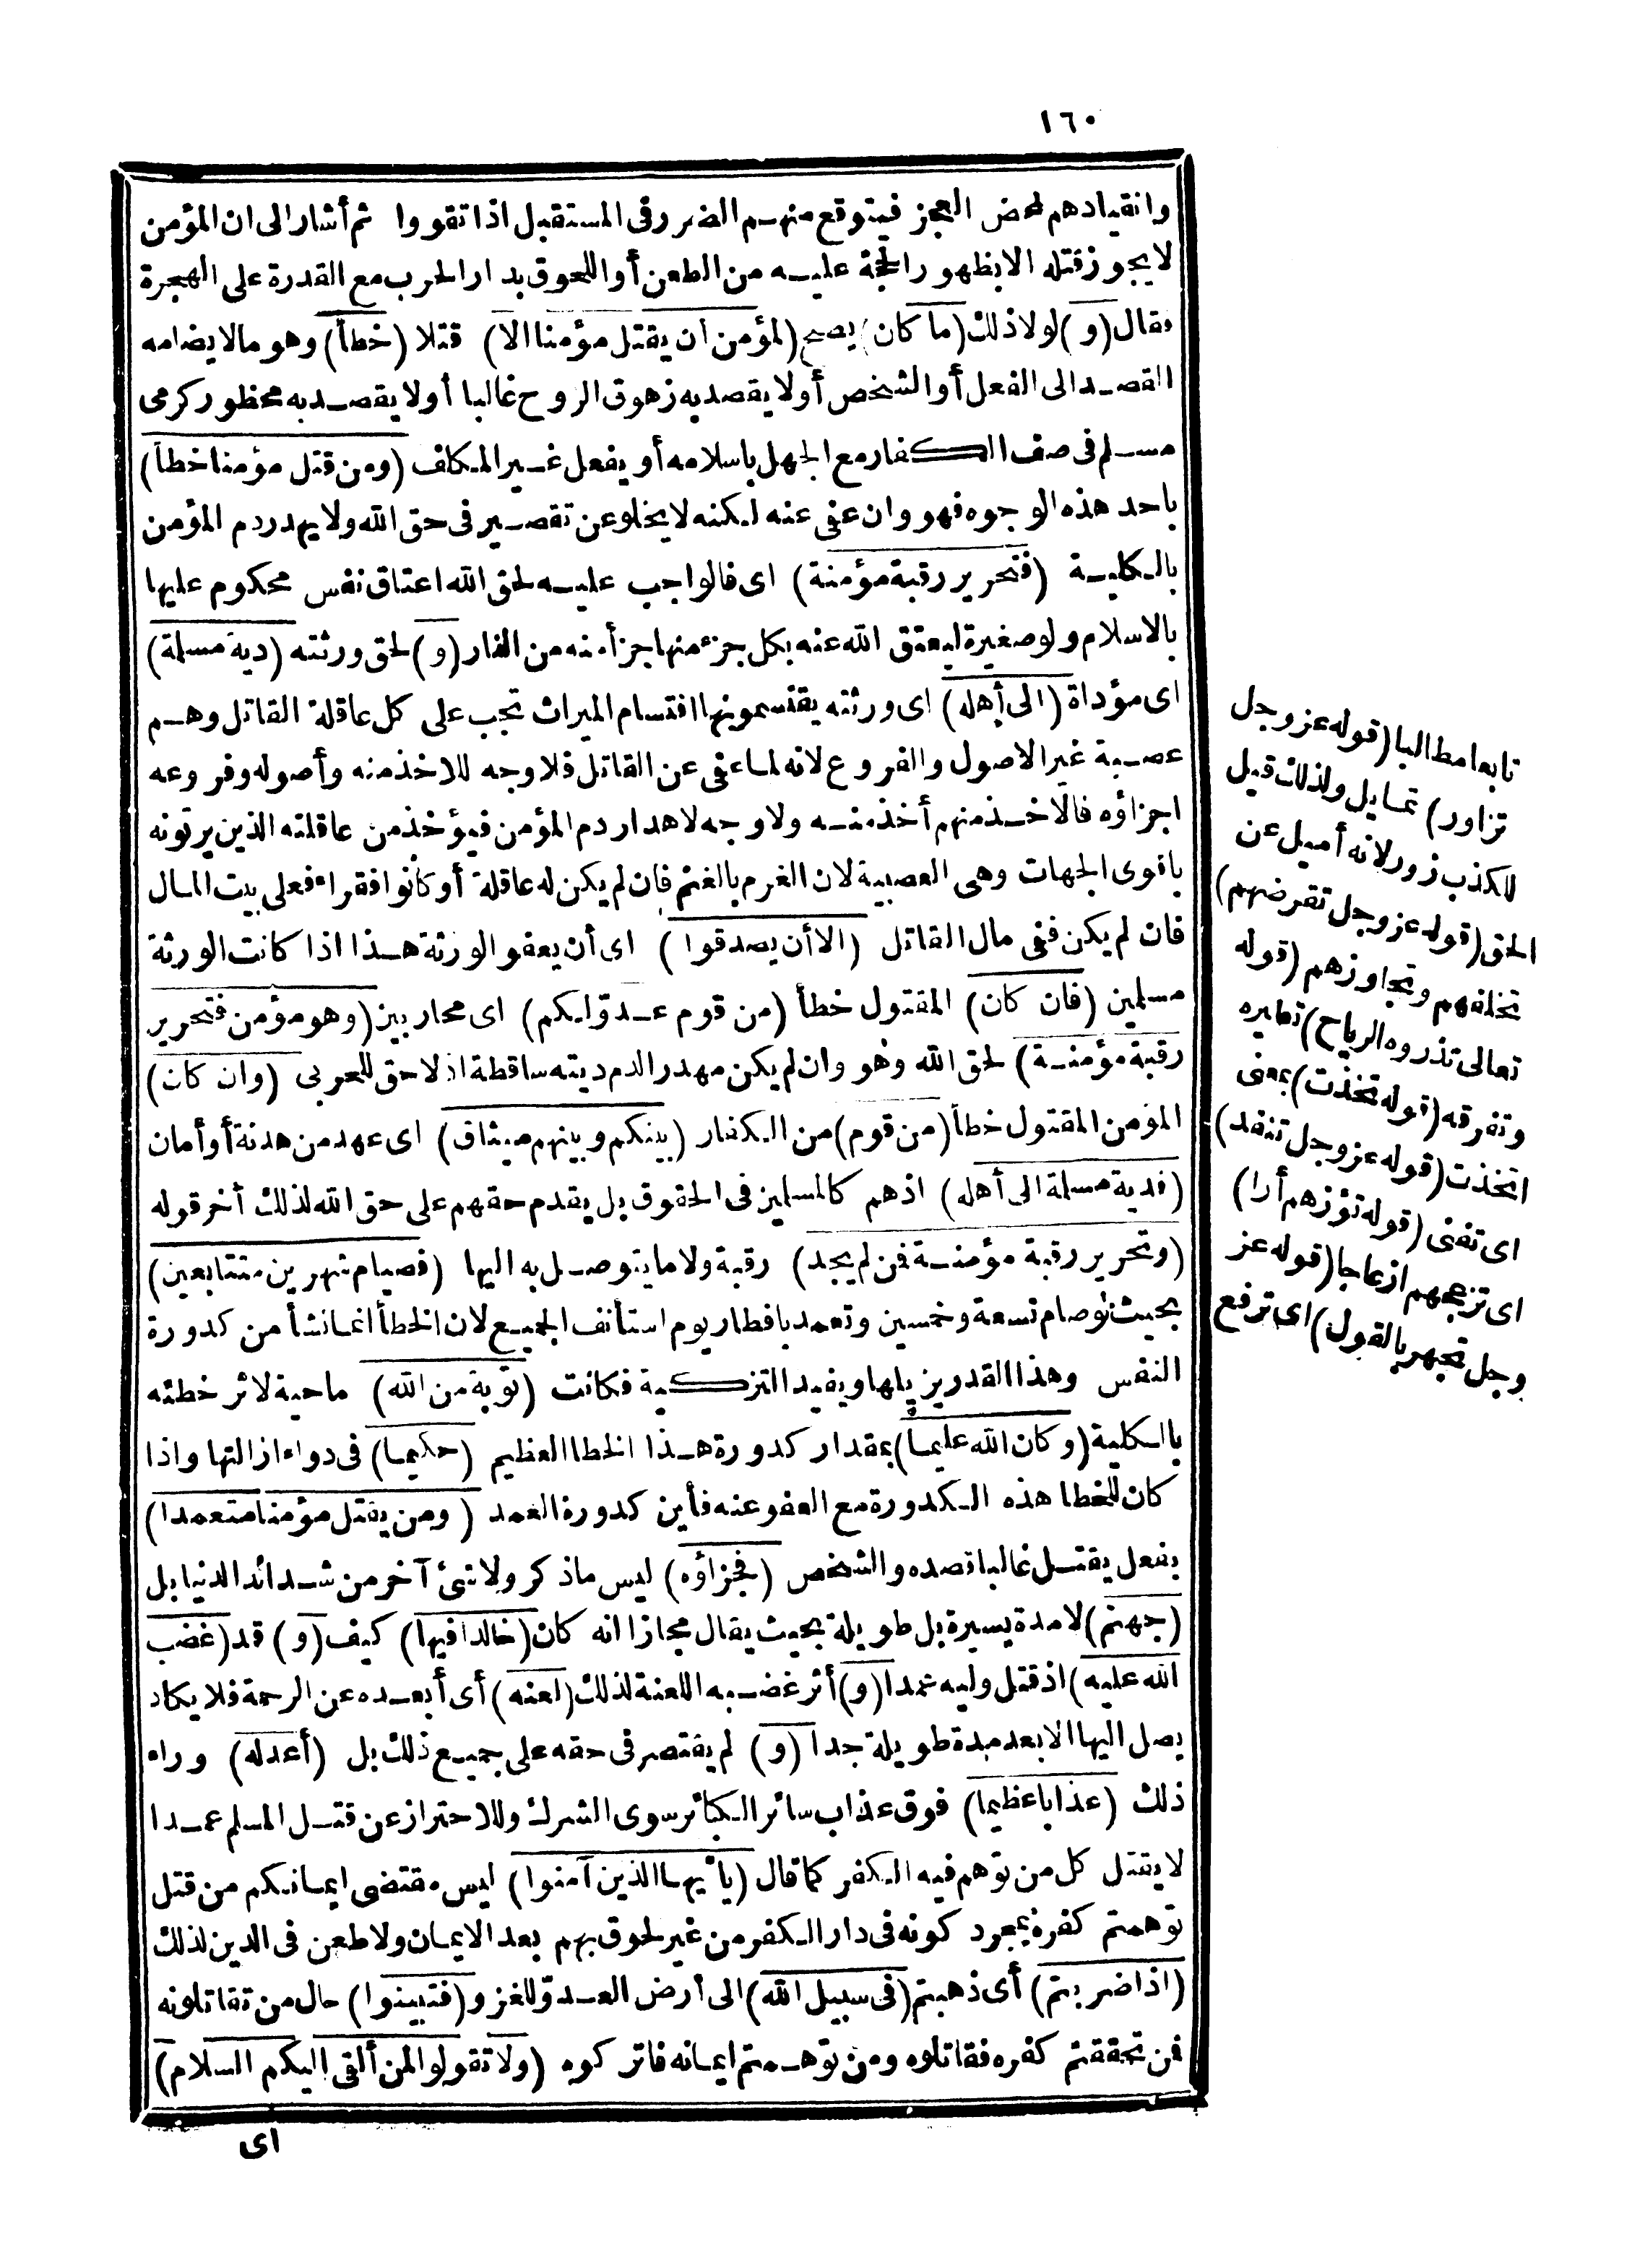 ١٦٠
وانقيادهم لمحض العجز فيتوقع منهم الضرر فى المستقبل اذا تقووا ثم أشار الى ان المؤمن
لا يجوز قتله الا بظهور الحجة عليه من الطعن أو اللحوق بدار الحرب مع القدرة على الهجرة
فقال (و) لولا ذلك (ما كان) يصح (لمؤمن ان يقتل مؤمنا الا) قتلا (خطأ) وهو مالا يضامه
القصد الى الفعل أو الشخص أو لا يقصد به زهوق الروح غالبا أو لا يقصد به محظور كرمى
مسلم فى صف الكفار مع الجهل باسلامه أو يفعل غير المكلف (ومن قتل مؤمنا خطأ)
باحد هذه الوجوه فهو وان عفى عنه لكنه لا يخلو عن تقصير فى حق الله ولا يهدر دم المؤمن
بالكلية (فتحرير رقبة مؤمنة) اى فالواجب عليه لحق الله اعتاق نفس محكوم عليها
بالاسلام ولو صغيرة ليعتق الله عنه بكل جزء منها جزأ منه من النار (و) لحق ورثته (دية مسلمة)
اى مؤداة (الى أهله) اى ورثته يقتسمونها اقتسام الميراث تجب على كل عاقلة القاتل وهم
عصبة غير الاصول والفروع لانه لما عفى عن القاتل فلا وجه للاخذ منه وأصوله وفروعه
اجزاؤه فالاخذ منهم أخذ منه ولا وجه لاهدار دم المؤمن فيؤخذ من عاقلته الذين يرثونه
باقوى الجهات وهى العصبية لان الغرم بالغنم فان لم يكن له عاقلة أو كانوا فقراء فعلى بيت المال
فان لم يكن ففى مال القاتل (الا أن يصدقوا) اى أن يعفو الورثة هذا اذا كانت الورثة
مسلمين (فان كان) المقتول خطأ (من قوم عدوّ لكم) اى محاربين (وهو مؤمن فتحرير
رقبة مؤمنة) لحق الله وهو وان لم يكن مهدر الدم ديته ساقطة اذ لا حق للحربى (وان كان)
المؤمن المقتول خطأ (من قوم) من الكفار (بينكم وبينهم ميثاق) اى عهد من هدنة أو أمان
(فدية مسلمة الى أهله) اذ هم كالمسلمين فى الحقوق بل يقدم حقهم على حق الله لذلك أخر قوله
(وتحرير رقبة مؤمنة فمن لم يجد) رقبة ولا ما يتوصل به اليها (فصيام شهرين متتابعين)
بحيث لو صام تسعة وخمسين وتعمد بافطار يوم استأنف الجميع لان الخطأ انما نشأ من كدورة
النفس وهذا القدر يزيلها ويفيد التزكية فكانت (توبة من الله) ماحية لاثر خطئه
بالكلية (وكان الله عليما) بمقدار كدورة هذا الخطا العظيم (حكيما) فى دواء ازالتها واذا
كان للخطا هذه الكدورة مع العفو عنه فأين كدورة العمد (ومن يقتل مؤمنا متعمدا)
بفعل يقتل غالبا قصده والشخص (فجزاؤه) ليس ما ذكر ولا شئ آخر من شدائد الدنيا بل
(جهنم) لا مدة يسيرة بل طويلة بحيث يقال مجازا انه كان (خالدا فيها) كيف (و) قد (غضب
الله عليه) اذ قتل وليه عمدا (و) أثر غضبه اللعنة لذلك (لعنه) أى أبعده عن الرحمة فلا يكاد
يصل اليها الا بعد مدة طويلة جدا (و) لم يقتصر فى حقه على جميع ذلك بل (أعدله) وراء
ذلك (عذابا عظيما) فوق عذاب سائر الكبائر سوى الشرك وللاحتراز عن قتل المسلم عمدا
لا يقتل كل من توهم فيه الكفر كما قال (يا أيها الذين آمنوا) ليس مقتضى ايمانكم من قتل
توهمتم كفره بمجرد كونه فى دار الكفر من غير لحوق بهم بعد الايمان ولا طعن فى الدين لذلك
(اذا ضربتم) أى ذهبتم (فى سبيل الله) الى أرض العدوّ للغزو (فتبينوا) حال من تقاتلونه
فمن تحققتم كفره فقاتلوه ومن توهمتم ايمانه فاتركوه (ولا تقولوا لمن ألقى اليكم السلام)
اى
تابعا مطالبا (قوله عز وجل
تزاور) تمايل ولذلك قيل
للكذب زور لانه أميل عن
الحق (قوله عز وجل تقرضهم)
تخلفهم وتجاوزهم (قوله
تعالى تذروه الرياح) تطيره
وتفرقه (قوله تخذت) بمعنى
اتخذت (قوله عز وجل تنفد)
اى تفنى (قوله تؤزهم أزا)
اى تزعجهم ازعاجا (قوله عز
وجل تجهر بالقول) اى ترفع